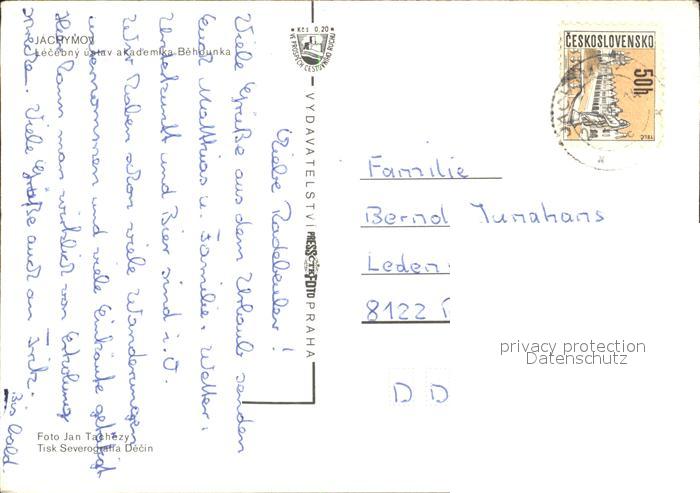 JÁCHYMOV
Léčebný ústav akademika Běhounka
Liebe Radebeuler!
Viele Grüße aus dem Urlaub senden
Euch Matthias u. Familie. Wetter,
Unterkunft und Bier sind i.O.
Wir haben schon viele Wanderungen
unternommen und viele Einkäufe getätigt
Hier kann man wirklich von Erholung
sprechen. Viele Grüße auch an Fritz.
Bis bald.
Foto Jan Tachezy
Tisk Severografia Děčín
Kčs 0,20
VE PROSPĚCH CESTOVNÍHO RUCHU
VYDAVATELSTVÍ PRESSFOTO PRAHA
ČTK
ČESKOSLOVENSKO
50h
TELČ
Familie
Bernd Junahans
Leden
8122
D D
privacy protection
Datenschutz